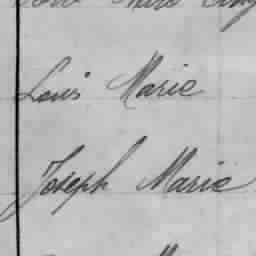 Louis Marie
Joseph Marie